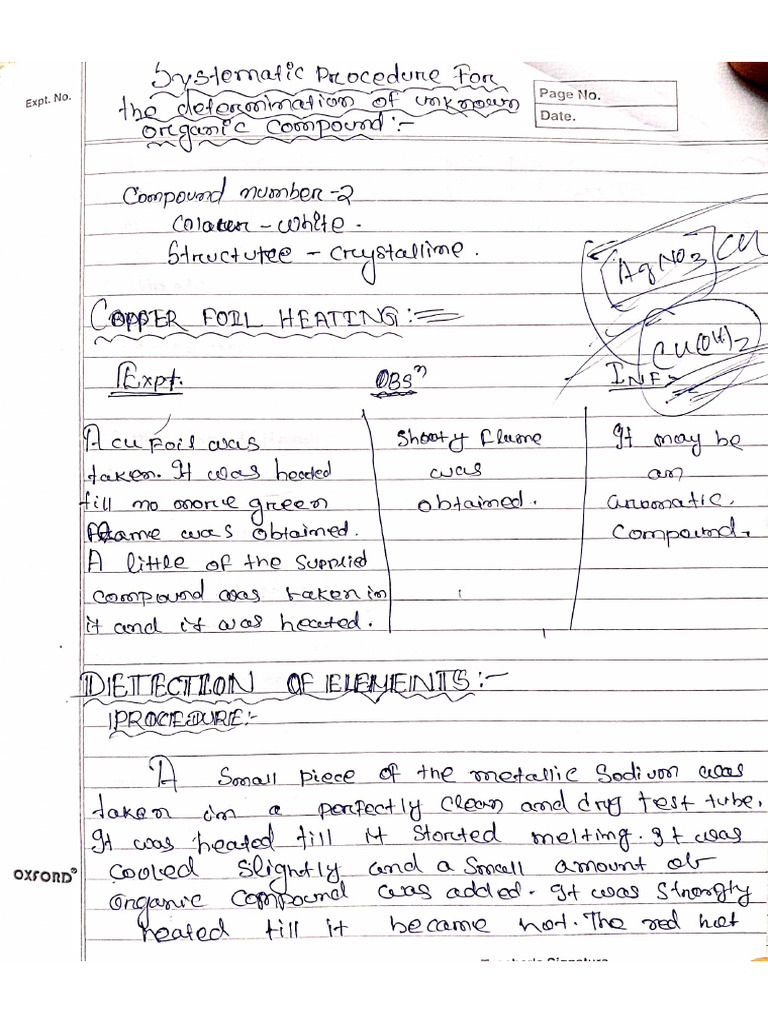 Systematic Procedure For
the determination of unknown
organic compound:-
Expt. No.
Page No.
Date.
Compound number-2
Colour - White.
Structure - Crystalline.
AgNO3 Cu
Cu(OH)2
COPPER FOIL HEATING:-
Expt. OBSn INF
A Cu Foil was
taken. It was heated
till no more green
flame was obtained.
A little of the supplied
compound was taken in
it and it was heated.
Shooty flame
was
obtained.
It may be
an
aromatic
compound.
DETECTION OF ELEMENTS:-
PROCEDURE:-
A small piece of the metallic Sodium was
taken in a perfectly clean and dry test tube.
It was heated till it started melting. It was
cooled slightly and a small amount of
organic compound was added. It was strongly
heated till it became hot. The red hot
OXFORD